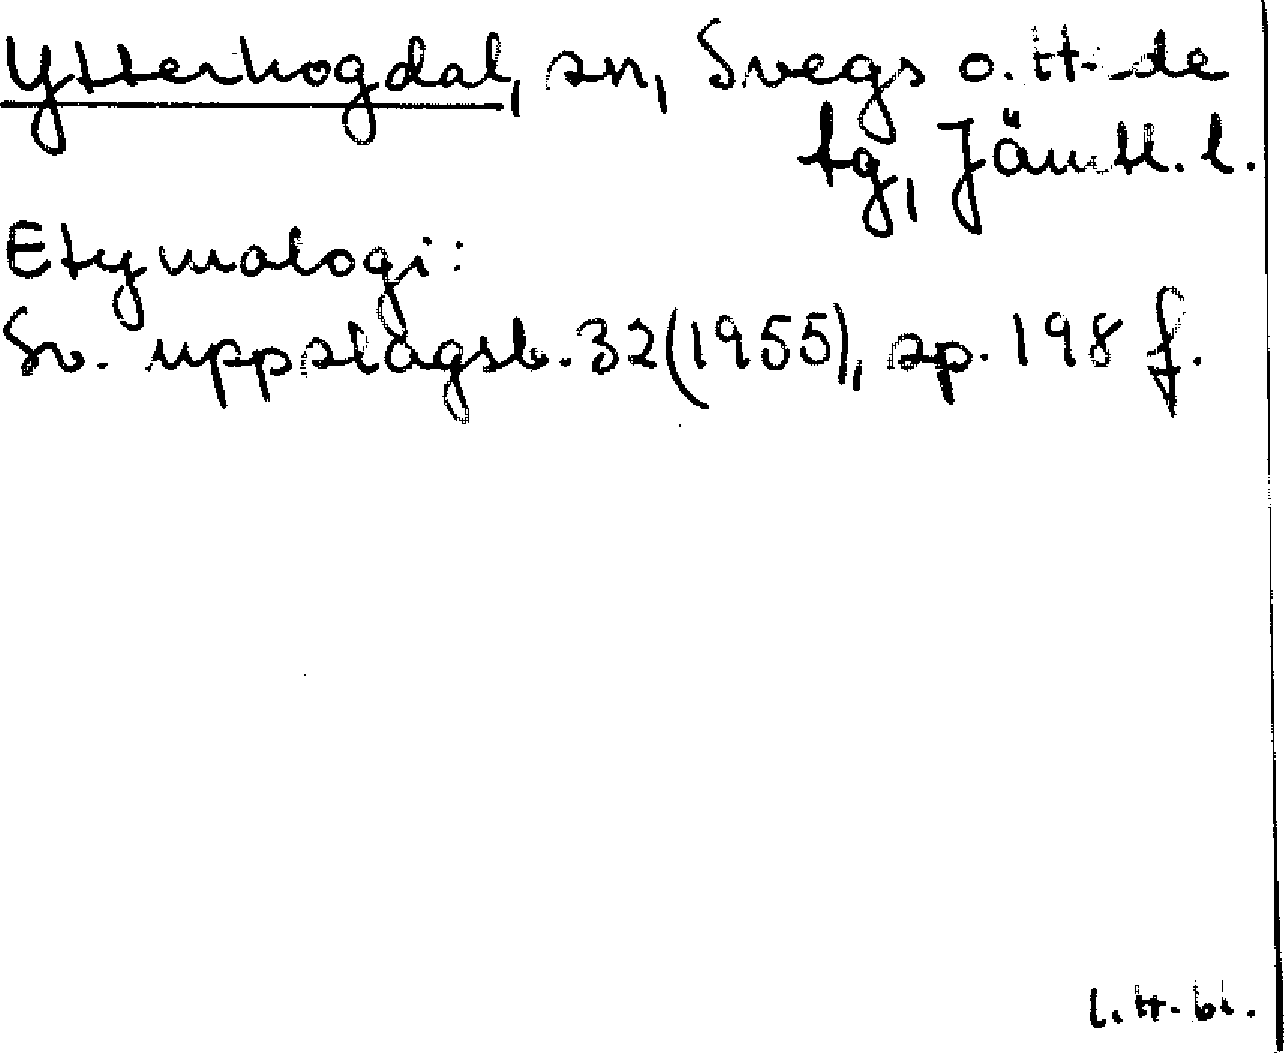 Ytterhogdal, sn, Svegs o. H-de
tg, Jämtl. l.
Etymologi:
Sv. uppslagsb. 32 (1955), sp. 198 f.